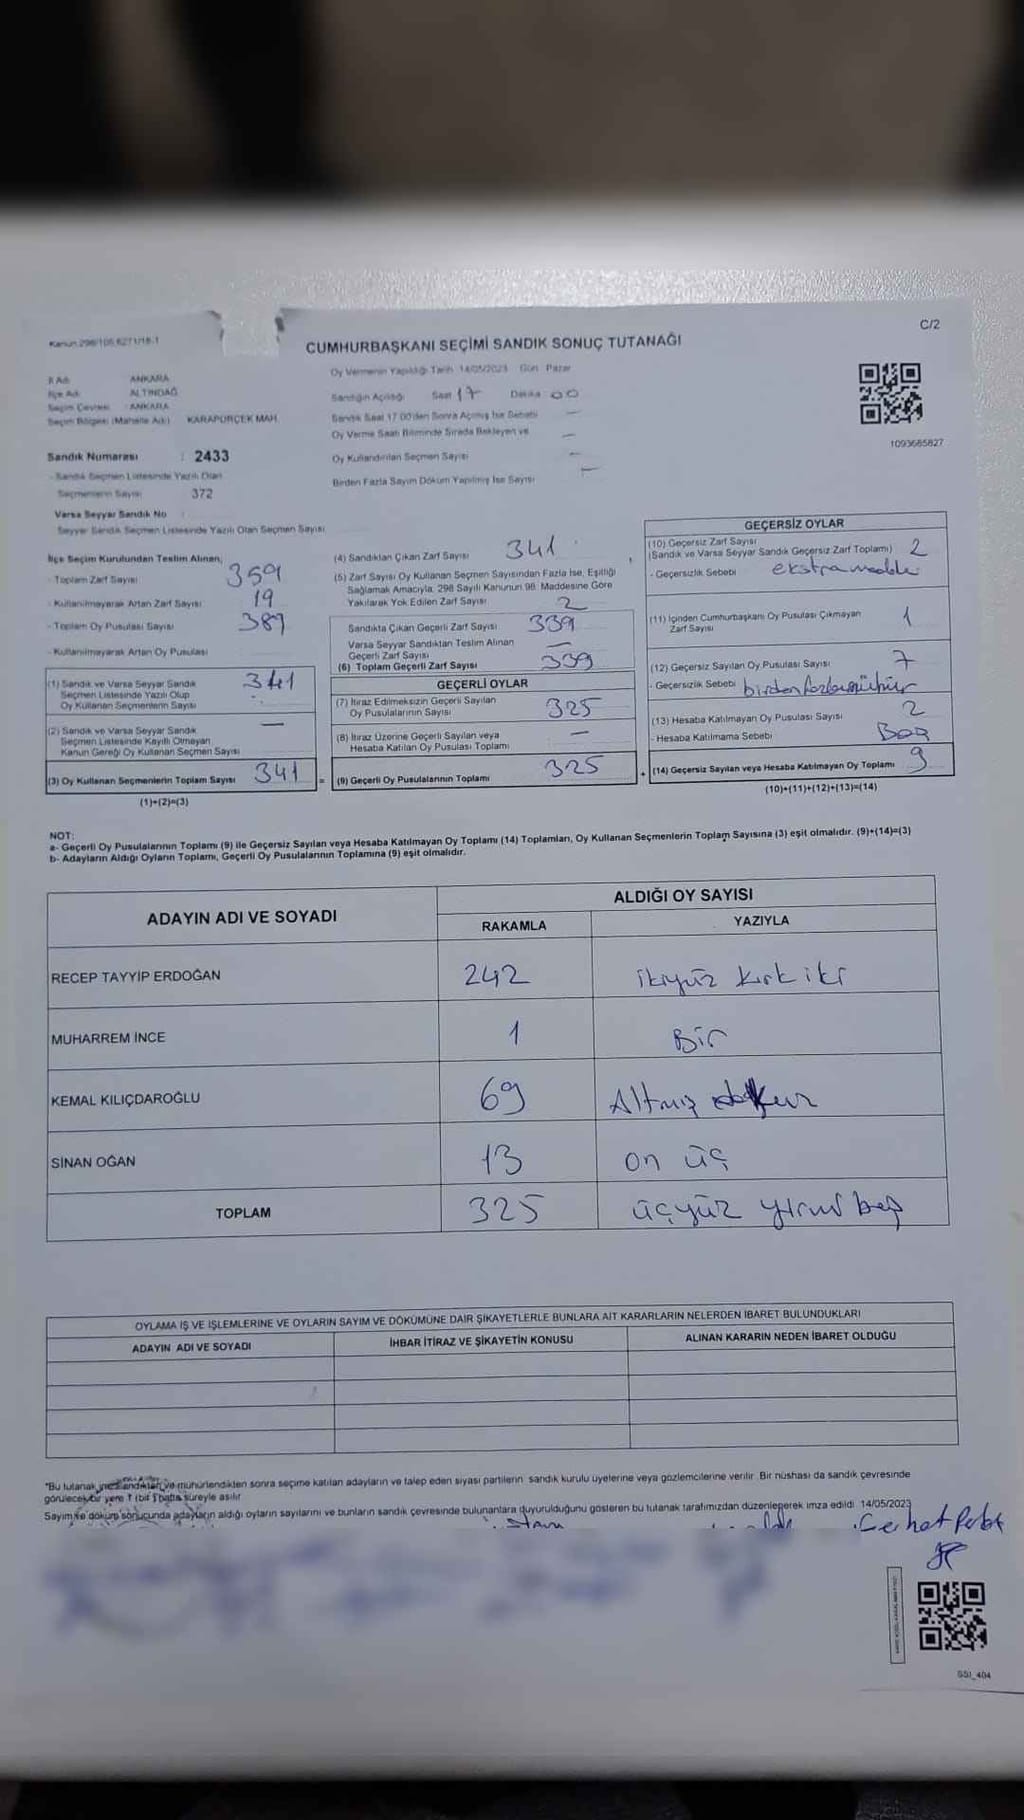 Kanun 298/105 6271/18-1
C/2
CUMHURBAŞKANI SEÇİMİ SANDIK SONUÇ TUTANAĞI
İl Adı ANKARA
İlçe Adı ALTINDAĞ
Seçim Çevresi : ANKARA
Seçim Bölgesi (Mahalle Adı) KARAPÜRÇEK MAH.
Sandık Numarası : 2433
- Sandık Seçmen Listesinde Yazılı Olan
Seçmenlerin Sayısı 372
Varsa Seyyar Sandık No :
Seyyar Sandık Seçmen Listesinde Yazılı Olan Seçmen Sayısı
Oy Vermenin Yapıldığı Tarih 14/05/2023 Gün Pazar
Sandığın Açılışı Saat 17 Dakika 00
Sandık Saat 17.00'den Sonra Açılmış İse Sebebi —
Oy Verme Saati Bitiminde Sırada Bekleyen ve —
Oy Kullandırılan Seçmen Sayısı —
Birden Fazla Sayım Döküm Yapılmış İse Sayısı —
1093685827
İlçe Seçim Kurulundan Teslim Alınan;
- Toplam Zarf Sayısı 359
- Kullanılmayarak Artan Zarf Sayısı 19
- Toplam Oy Pusulası Sayısı 389
- Kullanılmayarak Artan Oy Pusulası
(1) Sandık ve Varsa Seyyar Sandık
Seçmen Listesinde Yazılı Olup
Oy Kullanan Seçmenlerin Sayısı 341
(2) Sandık ve Varsa Seyyar Sandık
Seçmen Listesinde Kayıtlı Olmayan
Kanun Gereği Oy Kullanan Seçmen Sayısı —
(3) Oy Kullanan Seçmenlerin Toplam Sayısı 341 =
(1)+(2)=(3)
(4) Sandıktan Çıkan Zarf Sayısı 341
(5) Zarf Sayısı Oy Kullanan Seçmen Sayısından Fazla İse, Eşitliği
Sağlamak Amacıyla, 298 Sayılı Kanunun 98. Maddesine Göre
Yakılarak Yok Edilen Zarf Sayısı 2
Sandıkta Çıkan Geçerli Zarf Sayısı 339
Varsa Seyyar Sandıktan Teslim Alınan
Geçerli Zarf Sayısı —
(6) Toplam Geçerli Zarf Sayısı 339
GEÇERLİ OYLAR
(7) İtiraz Edilmeksizin Geçerli Sayılan
Oy Pusulalarının Sayısı 325
(8) İtiraz Üzerine Geçerli Sayılan veya
Hesaba Katılan Oy Pusulası Toplamı —
(9) Geçerli Oy Pusulalarının Toplamı 325 +
GEÇERSİZ OYLAR
(10) Geçersiz Zarf Sayısı
(Sandık ve Varsa Seyyar Sandık Geçersiz Zarf Toplamı) 2
- Geçersizlik Sebebi ekstra madde
(11) İçinden Cumhurbaşkanı Oy Pusulası Çıkmayan
Zarf Sayısı 1
(12) Geçersiz Sayılan Oy Pusulası Sayısı 7
- Geçersizlik Sebebi birden fazla mühür
(13) Hesaba Katılmayan Oy Pusulası Sayısı 2
- Hesaba Katılmama Sebebi Boş
(14) Geçersiz Sayılan veya Hesaba Katılmayan Oy Toplamı 9
(10)+(11)+(12)+(13)=(14)
NOT:
a- Geçerli Oy Pusulalarının Toplamı (9) ile Geçersiz Sayılan veya Hesaba Katılmayan Oy Toplamı (14) Toplamları, Oy Kullanan Seçmenlerin Toplam Sayısına (3) eşit olmalıdır. (9)+(14)=(3)
b- Adayların Aldığı Oyların Toplamı, Geçerli Oy Pusulalarının Toplamına (9) eşit olmalıdır.
ADAYIN ADI VE SOYADI
ALDIĞI OY SAYISI
RAKAMLA YAZIYLA
RECEP TAYYİP ERDOĞAN 242 ikiyüz kırk iki
MUHARREM İNCE 1 Bir
KEMAL KILIÇDAROĞLU 69 Altmış dokuz
SİNAN OĞAN 13 on üç
TOPLAM 325 üçyüz yirmi beş
OYLAMA İŞ VE İŞLEMLERİNE VE OYLARIN SAYIM VE DÖKÜMÜNE DAİR ŞİKAYETLERLE BUNLARA AİT KARARLARIN NELERDEN İBARET BULUNDUKLARI
ADAYIN ADI VE SOYADI İHBAR İTİRAZ VE ŞİKAYETİN KONUSU ALINAN KARARIN NEDEN İBARET OLDUĞU
*Bu tutanak imzalandıktan ve mühürlendikten sonra seçime katılan adayların ve talep eden siyasi partilerin sandık kurulu üyelerine veya gözlemcilerine verilir. Bir nüshası da sandık çevresinde
görülecek bir yere 1 (bir) hafta süreyle asılır.
Sayım ve döküm sonucunda adayların aldığı oyların sayılarını ve bunların sandık çevresinde bulunanlara duyurulduğunu gösteren bu tutanak tarafımızdan düzenlenerek imza edildi 14/05/2023
SSI_404